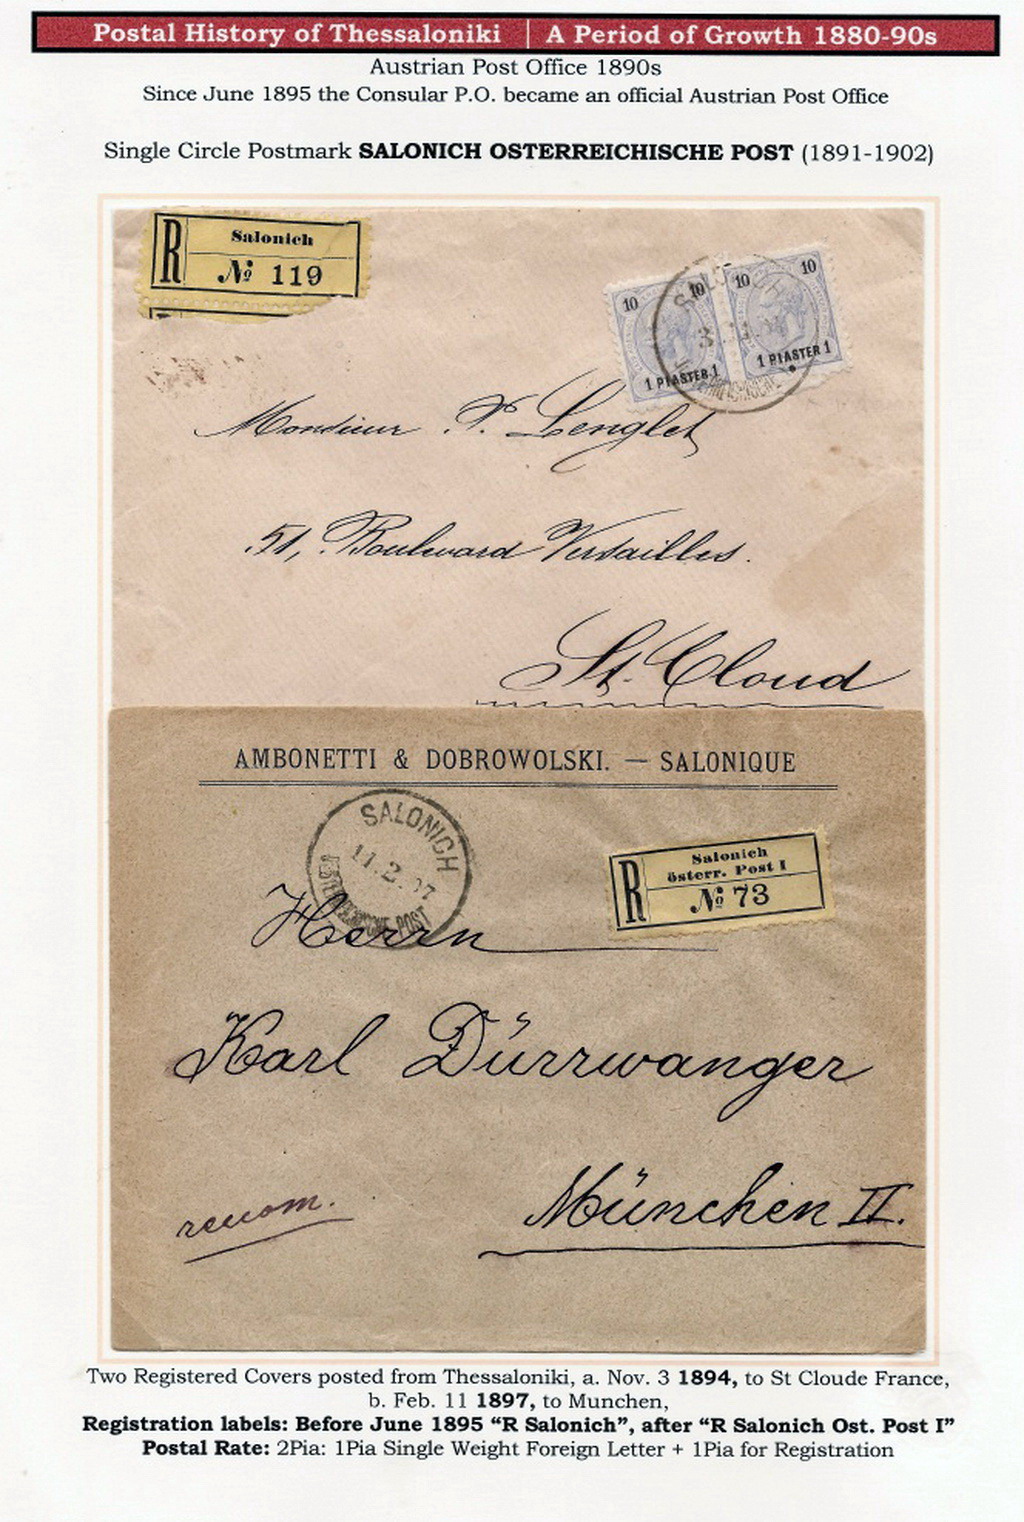 Postal History of Thessaloniki | A Period of Growth 1880-90s
Austrian Post Office 1890s
Since June 1895 the Consular P.O. became an official Austrian Post Office
Single Circle Postmark SALONICH OSTERREICHISCHE POST (1891-1902)
R Salonich
№ 119
10 10 10 10
1 PIASTER 1 1 PIASTER 1
Monsieur P. Lenglet
51, Boulevard Versailles.
St. Cloud
AMBONETTI & DOBROWOLSKI. — SALONIQUE
SALONICH
11.2.97
OESTERREICHISCHE POST
R Salonich
österr. Post I
№ 73
Herrn
Karl Dürrwanger
recom.
München II.
Two Registered Covers posted from Thessaloniki, a. Nov. 3 1894, to St Cloude France,
b. Feb. 11 1897, to Munchen,
Registration labels: Before June 1895 “R Salonich”, after “R Salonich Ost. Post I”
Postal Rate: 2Pia: 1Pia Single Weight Foreign Letter + 1Pia for Registration